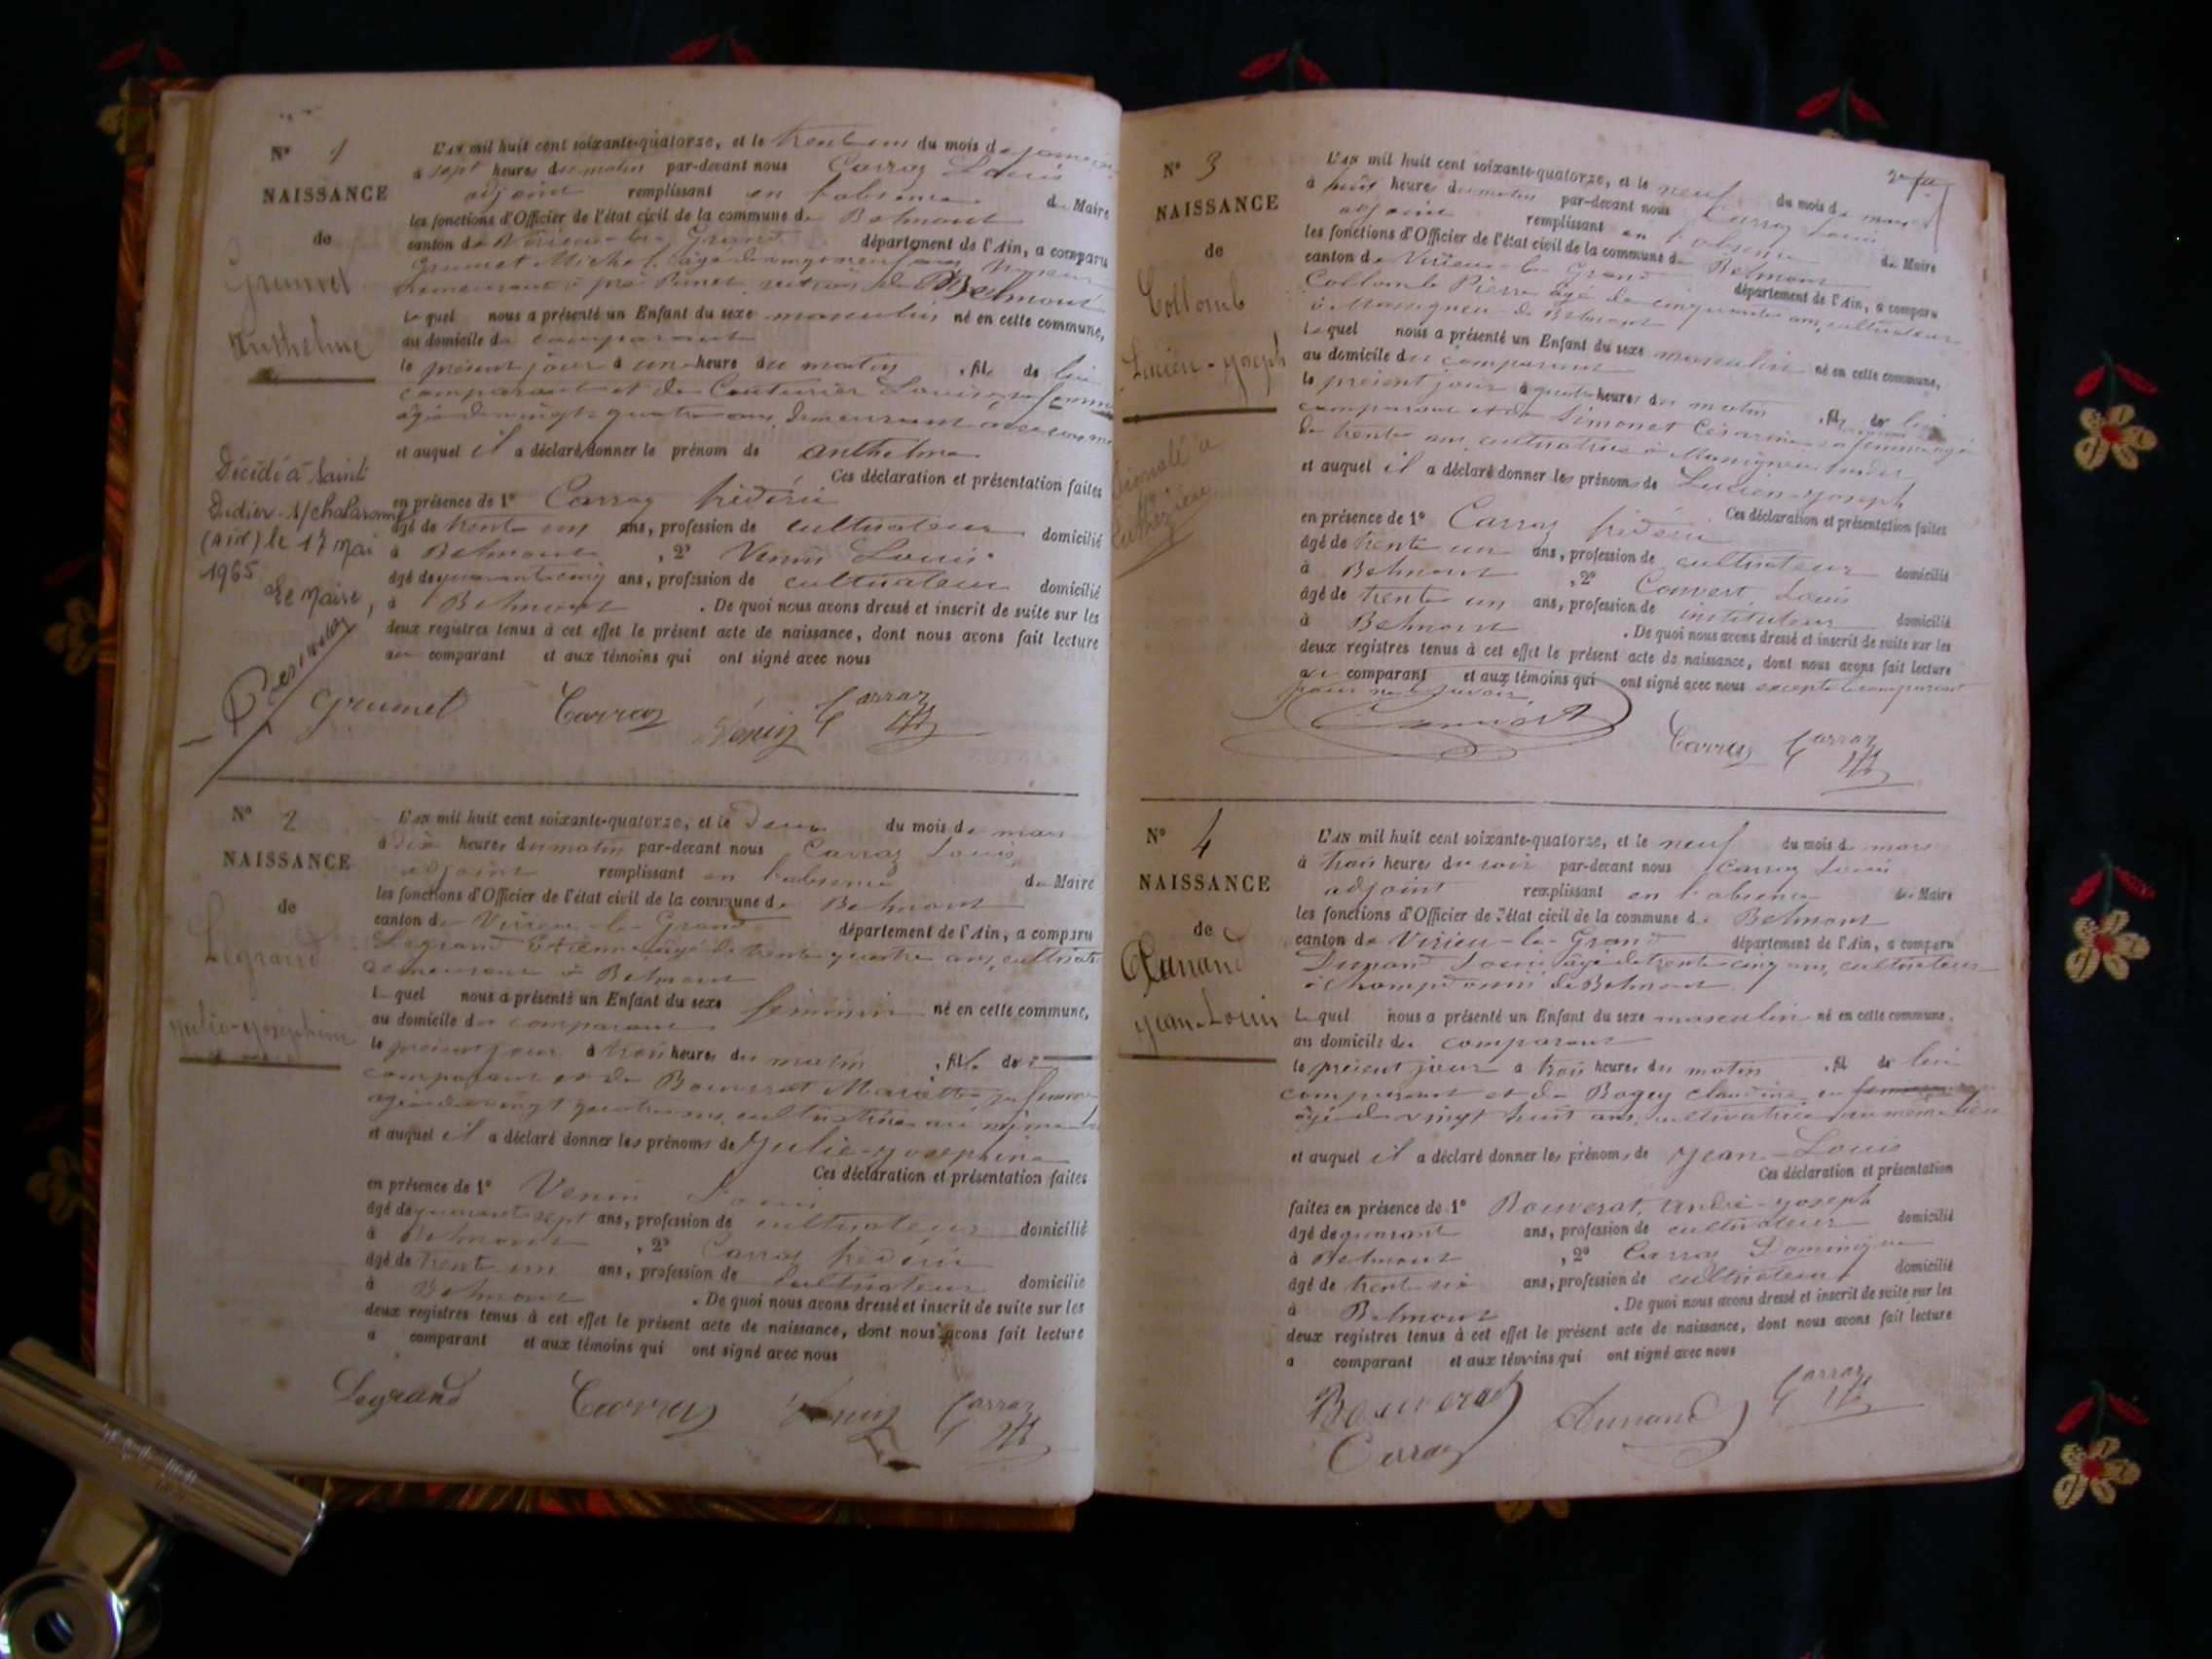 N° 1
NAISSANCE
de
Grumet
Anthelme
Décédé à Saint
Didier s/chalaronne
(Ain) le 17 mai
1965
Le Maire,
L'AN mil huit cent soixante-quatorze, et le trente un du mois de janvier
à sept heures du matin par-devant nous Carraz Louis
adjoint remplissant en l'absence du Maire
les fonctions d'Officier de l'état civil de la commune de Belmont
canton de Virieu-le-Grand département de l'Ain, a comparu
Grumet Michel âgé de vingt neuf ans
demeurant à de Belmont
Lequel nous a présenté un Enfant du sexe masculin né en cette commune,
au domicile du comparant
le présent jour à une heure du matin , fils de lui
comparant et de Couturier Louise sa femme
âgée de vingt quatre ans, demeurant avec
et auquel il a déclaré donner le prénom de Anthelme
Ces déclaration et présentation faites
en présence de 1° Carraz frédéric
âgé de trente un ans, profession de cultivateur domicilié
à Belmont , 2° Venin Louis
âgé de quarante cinq ans, profession de cultivateur domicilié
à Belmont . De quoi nous avons dressé et inscrit de suite sur les
deux registres tenus à cet effet le présent acte de naissance, dont nous avons fait lecture
au comparant et aux témoins qui ont signé avec nous
Grumet Carraz Venin Carraz
N° 2
NAISSANCE
de
Legrand
Julie-Joséphine
L'AN mil huit cent soixante-quatorze, et le deux du mois de mars
à dix heures du matin par-devant nous Carraz Louis
adjoint remplissant en l'absence du Maire
les fonctions d'Officier de l'état civil de la commune de Belmont
canton de Virieu-le-Grand département de l'Ain, a comparu
Legrand Etienne âgé de trente quatre ans, cultivateur
demeurant à Belmont
Lequel nous a présenté un Enfant du sexe féminin né en cette commune,
au domicile du comparant
le présent jour à trois heures du matin , fille de
comparant et de Bouverat Mariette sa femme
âgée de vingt quatre ans, cultivatrice au même
et auquel il a déclaré donner les prénoms de Julie-Joséphine
Ces déclaration et présentation faites
en présence de 1° Venin Louis
âgé de quarante sept ans, profession de cultivateur domicilié
à Belmont , 2° Carraz frédéric
âgé de trente un ans, profession de cultivateur domicilié
à Belmont . De quoi nous avons dressé et inscrit de suite sur les
deux registres tenus à cet effet le présent acte de naissance, dont nous avons fait lecture
a comparant et aux témoins qui ont signé avec nous
Legrand Carraz Venin Carraz
N° 3
NAISSANCE
de
Collomb
Lucien-Joseph
L'AN mil huit cent soixante-quatorze, et le neuf du mois de mars
à huit heures du matin par-devant nous Carraz Louis
adjoint remplissant en l'absence du Maire
les fonctions d'Officier de l'état civil de la commune de Belmont
canton de Virieu-le-Grand département de l'Ain, a comparu
Collomb Pierre âgé de cinquante ans, cultivateur
à Massignieu de Belmont
Lequel nous a présenté un Enfant du sexe masculin né en cette commune,
au domicile du comparant
le présent jour à quatre heures du matin , fils de lui
comparant et de Simonet Césarine sa femme âgée
de trente ans, cultivatrice à Massignieu
et auquel il a déclaré donner les prénoms de Lucien-Joseph
Ces déclaration et présentation faites
en présence de 1° Carraz frédéric
âgé de trente un ans, profession de cultivateur domicilié
à Belmont , 2° Convert Louis
âgé de trente un ans, profession de instituteur domicilié
à Belmont . De quoi nous avons dressé et inscrit de suite sur les
deux registres tenus à cet effet le présent acte de naissance, dont nous avons fait lecture
au comparant et aux témoins qui ont signé avec nous excepté le comparant
pour ne le savoir
Convert Carraz Carraz
N° 4
NAISSANCE
de
Dunand
Jean-Louis
L'AN mil huit cent soixante-quatorze, et le neuf du mois de mars
à trois heures du soir par-devant nous Carraz Louis
adjoint remplissant en l'absence du Maire
les fonctions d'Officier de l'état civil de la commune de Belmont
canton de Virieu-le-Grand département de l'Ain, a comparu
Dunand Louis âgé de trente cinq ans, cultivateur
à de Belmont
Lequel nous a présenté un Enfant du sexe masculin né en cette commune,
au domicile du comparant
le présent jour à trois heures du matin , fil de lui
comparant et de Bogey Claudine sa femme
âgée de vingt huit ans, cultivatrice au même lieu
et auquel il a déclaré donner les prénoms de Jean-Louis
Ces déclaration et présentation
faites en présence de 1° Bouverat, André-Joseph
âgé de quarant ans, profession de cultivateur domicilié
à Belmont , 2° Carraz Dominique
âgé de trente six ans, profession de cultivateur domicilié
à Belmont . De quoi nous avons dressé et inscrit de suite sur les
deux registres tenus à cet effet le présent acte de naissance, dont nous avons fait lecture
a comparant et aux témoins qui ont signé avec nous
Bouverat Dunand Carraz
Carraz